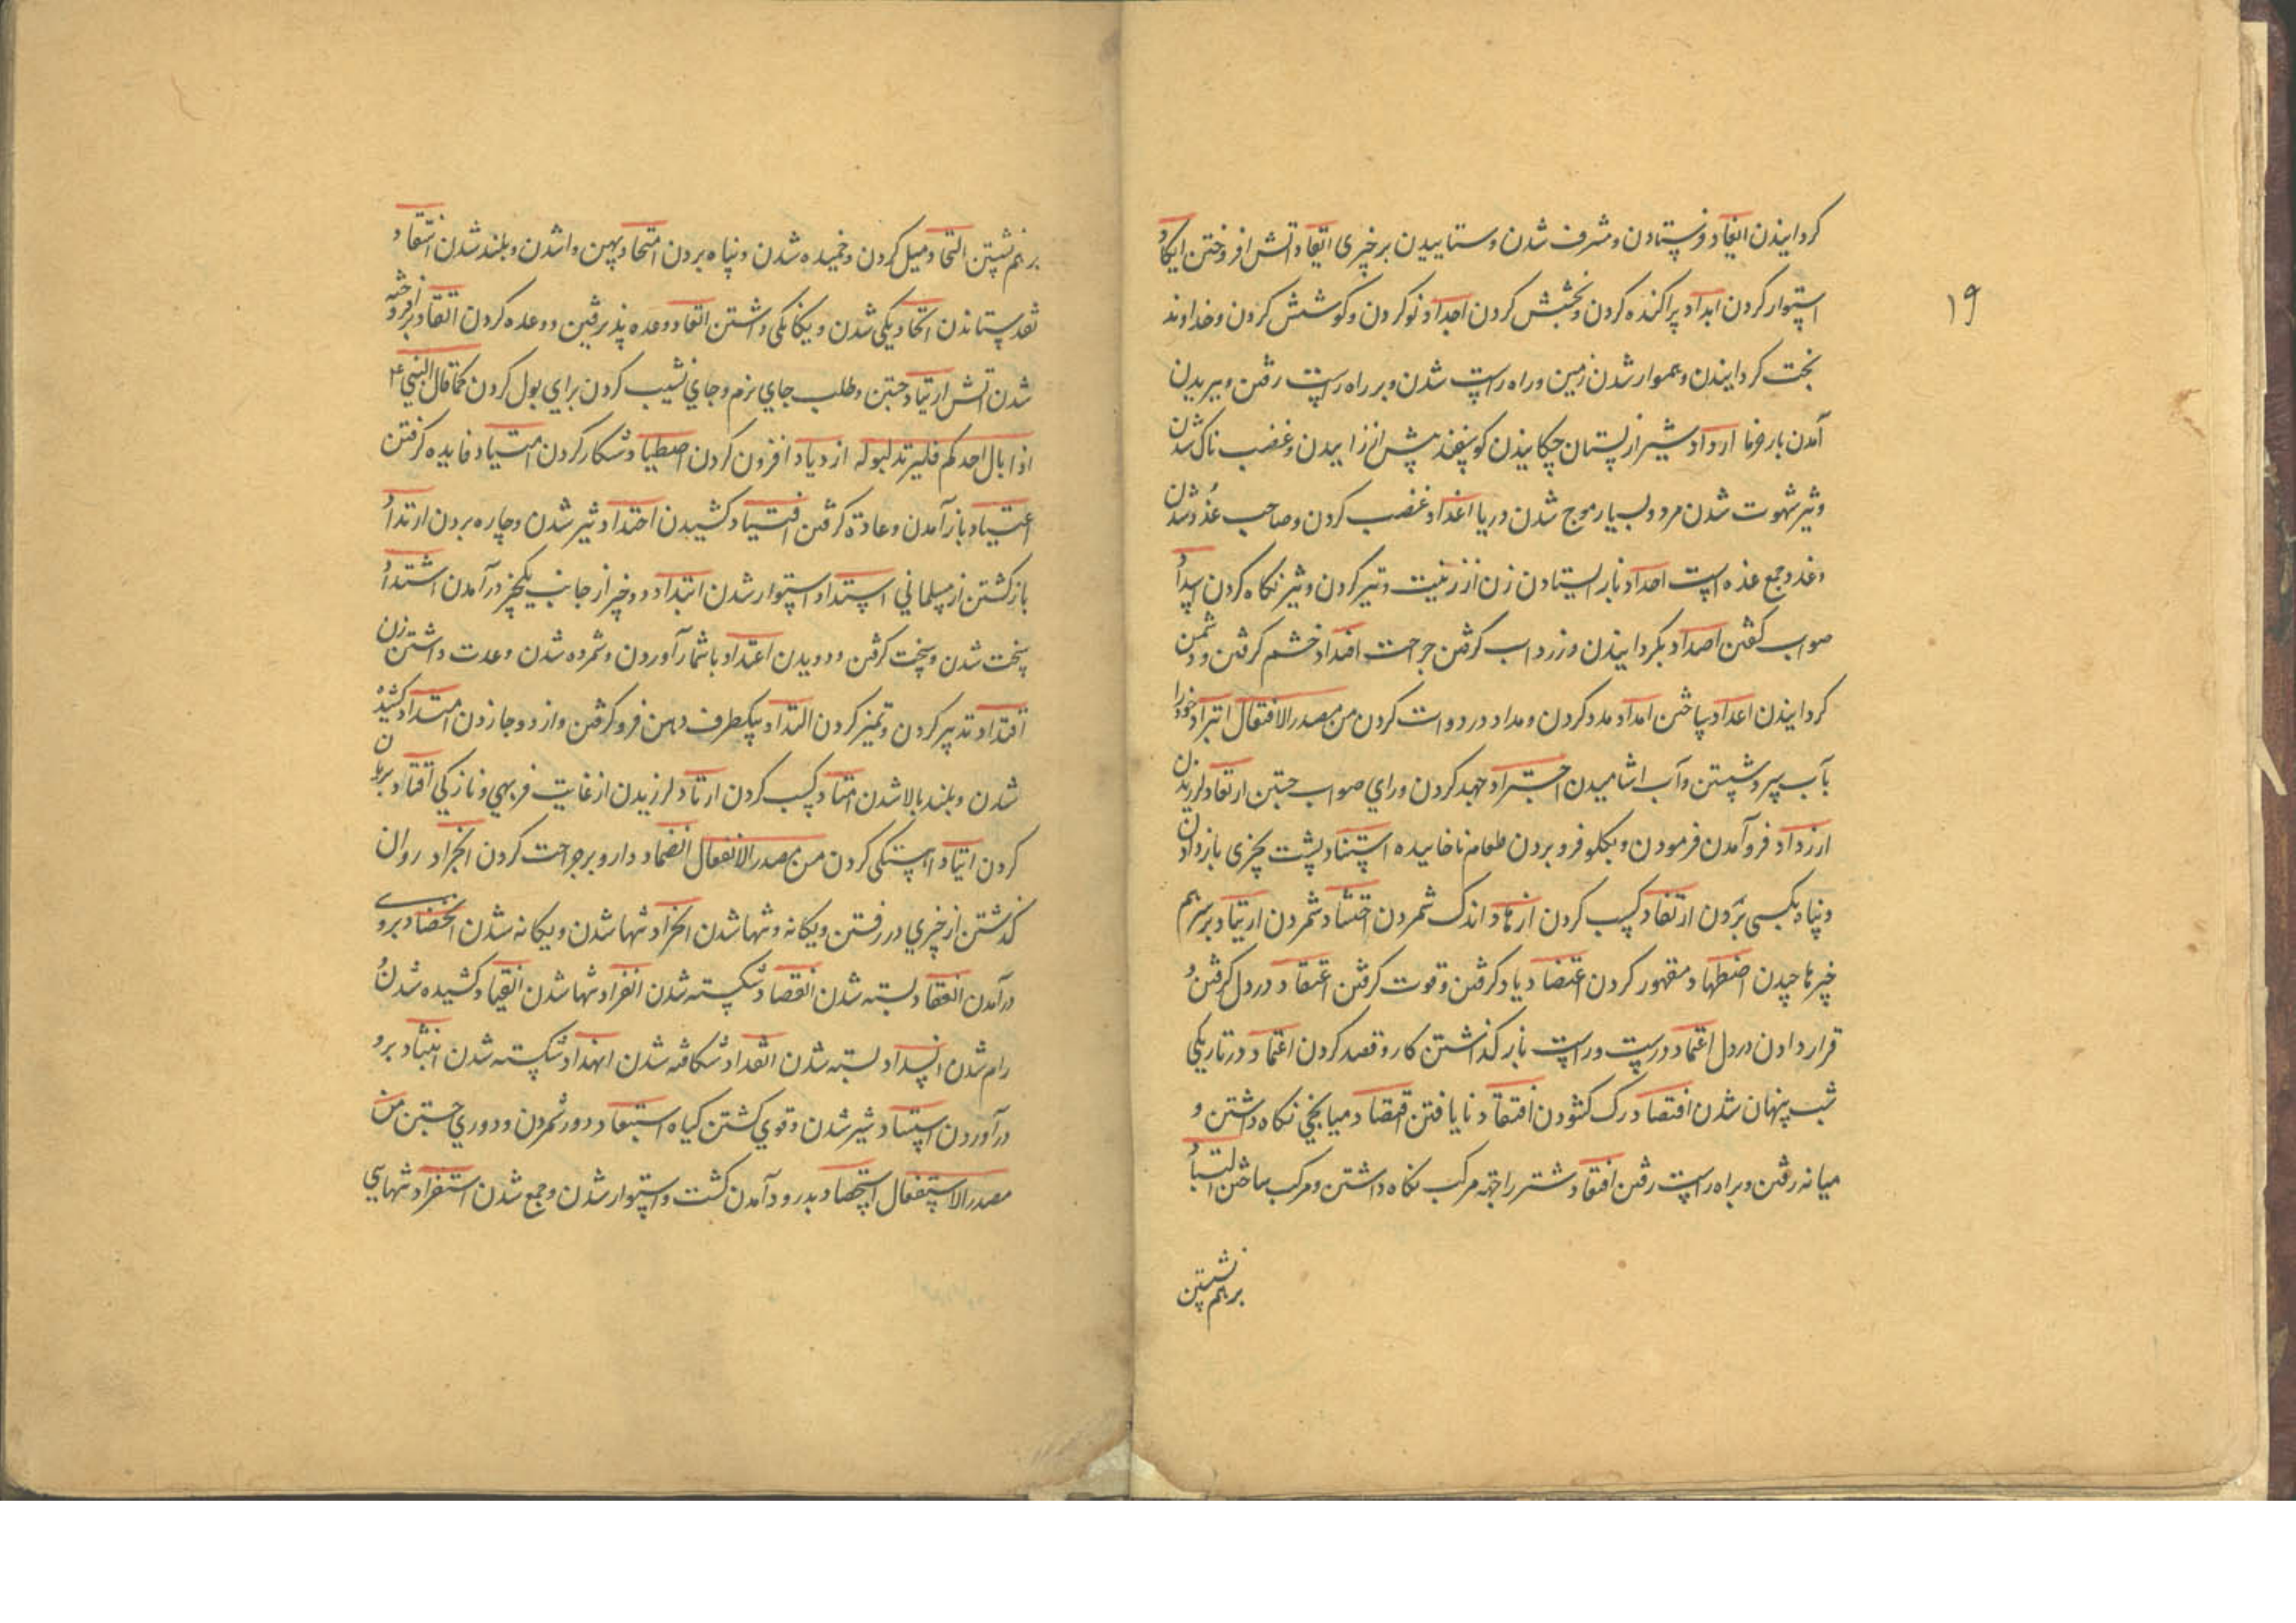 کردانیدن ایفاد فرستادن و مشرف شدن و ستابیدن بر چیزی ایقاد اتش افروختن ایکاد
استوار کردن ابداد پراکنده کردن و بخشش کردن اجداد نو کردن و کوشش کردن و خداوند
بخت کردانیدن و هموار شدن زمین و راه راست شدن و بر راه راست رفتن و ببریدن
آمدن بار خرما ارداد شیر از پستان چکانیدن کوسفند پیش از زاییدن و غضب ناک شدن
و تیز شهوت شدن مرد و بسیار موج شدن دریا اغداد غضب کردن و صاحب غدد شدن
و غدد جمع غده است احداد باز ایستادن زن از زینت و تیز کردن و تیز نکاه کردن اسداد
صواب کفتن اصداد بکردانیدن و زرداب کرفتن جراحت افداد خشم کرفتن و دشمن
کردانیدن اعداد ساختن امداد مدد کردن و مداد در دوات کردن من مصدر الافتعال ابتراد خود را
بآب سرد شستن و آب اشامیدن اجتراد جهد کردن و رای صواب جستن ارتعاد لرزیدن
ازدراد فرو آمدن فرمودن و بکلو فرو بردن طعام ناخاییده استناد پشت بچیزی باز دادن
و پناه بکسی بردن ارتفاد کسب کردن ازهاد اندک شمردن احتشاد شمردن ارتباد بر سر هم
چیزها چیدن اضطهاد مقهور کردن اعتضاد یاد کرفتن و قوت کرفتن اعتقاد در دل کرفتن و
قرار دادن در دل اعتماد درست و راست باز کذاشتن کار و قصد کردن اغتماد در تاریکی
شب پنهان شدن افتصاد رک کشودن افتقاد نایافتن اقتصاد میانجی نکاه داشتن و
میانه رفتن و براه راست رفتن اقتعاد شتر را جهته مرکب نکاه داشتن و مرکب ساختن التباد
بر هم نشستن
۱۹
بر هم نشستن التحاد میل کردن و خمیده شدن و پناه بردن امتحاد پهن واشدن و بلند شدن انتقاد
نقد ستاندن اتحاد یکی شدن و یکانکی داشتن اتعاد وعده پذیرفتن و وعده کردن اتقاد بر افروخته
شدن اتش ارتیاد جستن و طلب جای نرم و جای نشیب کردن برای بول کردن کما قال النبی ع
اذا بال احدکم فلیرتد لبوله ازدیاد افزون کردن اصطیاد شکار کردن امتیاد فایده کرفتن
اعتیاد باز آمدن و عادة کرفتن اقتیاد کشیدن احتداد تیز شدن و چاره بردن ارتداد
باز کشتن از مسلمانی استداد استوار شدن ابتداد دو چیز از جانب یکچیز در آمدن اشتداد
سخت شدن و سخت کرفتن و دویدن اعتداد باشمار آوردن و شمرده شدن و عدت داشتن زن
اقتداد تدبیر کردن و تمیز کردن التداد بیکطرف دهن فرو کرفتن و از دو جا زدن امتداد کشیده
شدن و بلند بالا شدن امتاد کسب کردن ارتاد لرزیدن از غایت فربهی و نازکی افتاد بریان
کردن اتیاد اهستکی کردن من مصدر الانفعال انضماد دارو بر جراحت کردن انجراد روان
کذشتن از چیزی در رفتن و یکانه و تنها شدن انحراد تنها شدن و یکانه شدن انحصاد برو
درآمدن انعقاد بسته شدن انقصاد شکسته شدن انفراد تنها شدن انقیاد کشیده شدن و
رام شدن انسداد بسته شدن انقداد شکافته شدن انهداد شکسته شدن برو
درآوردن استساد شیر شدن و قوی کشتن کیاه استبعاد دور شمردن و دوری جستن من
مصدر الاستفعال استحصاد بدرود آمدن کشت و استوار شدن و جمع شدن استفراد تنهایی